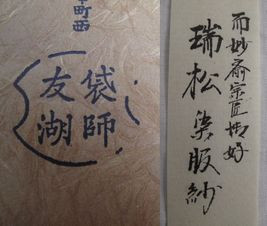 町西
袋師
友湖
而妙斎宗匠御好
瑞松染服紗